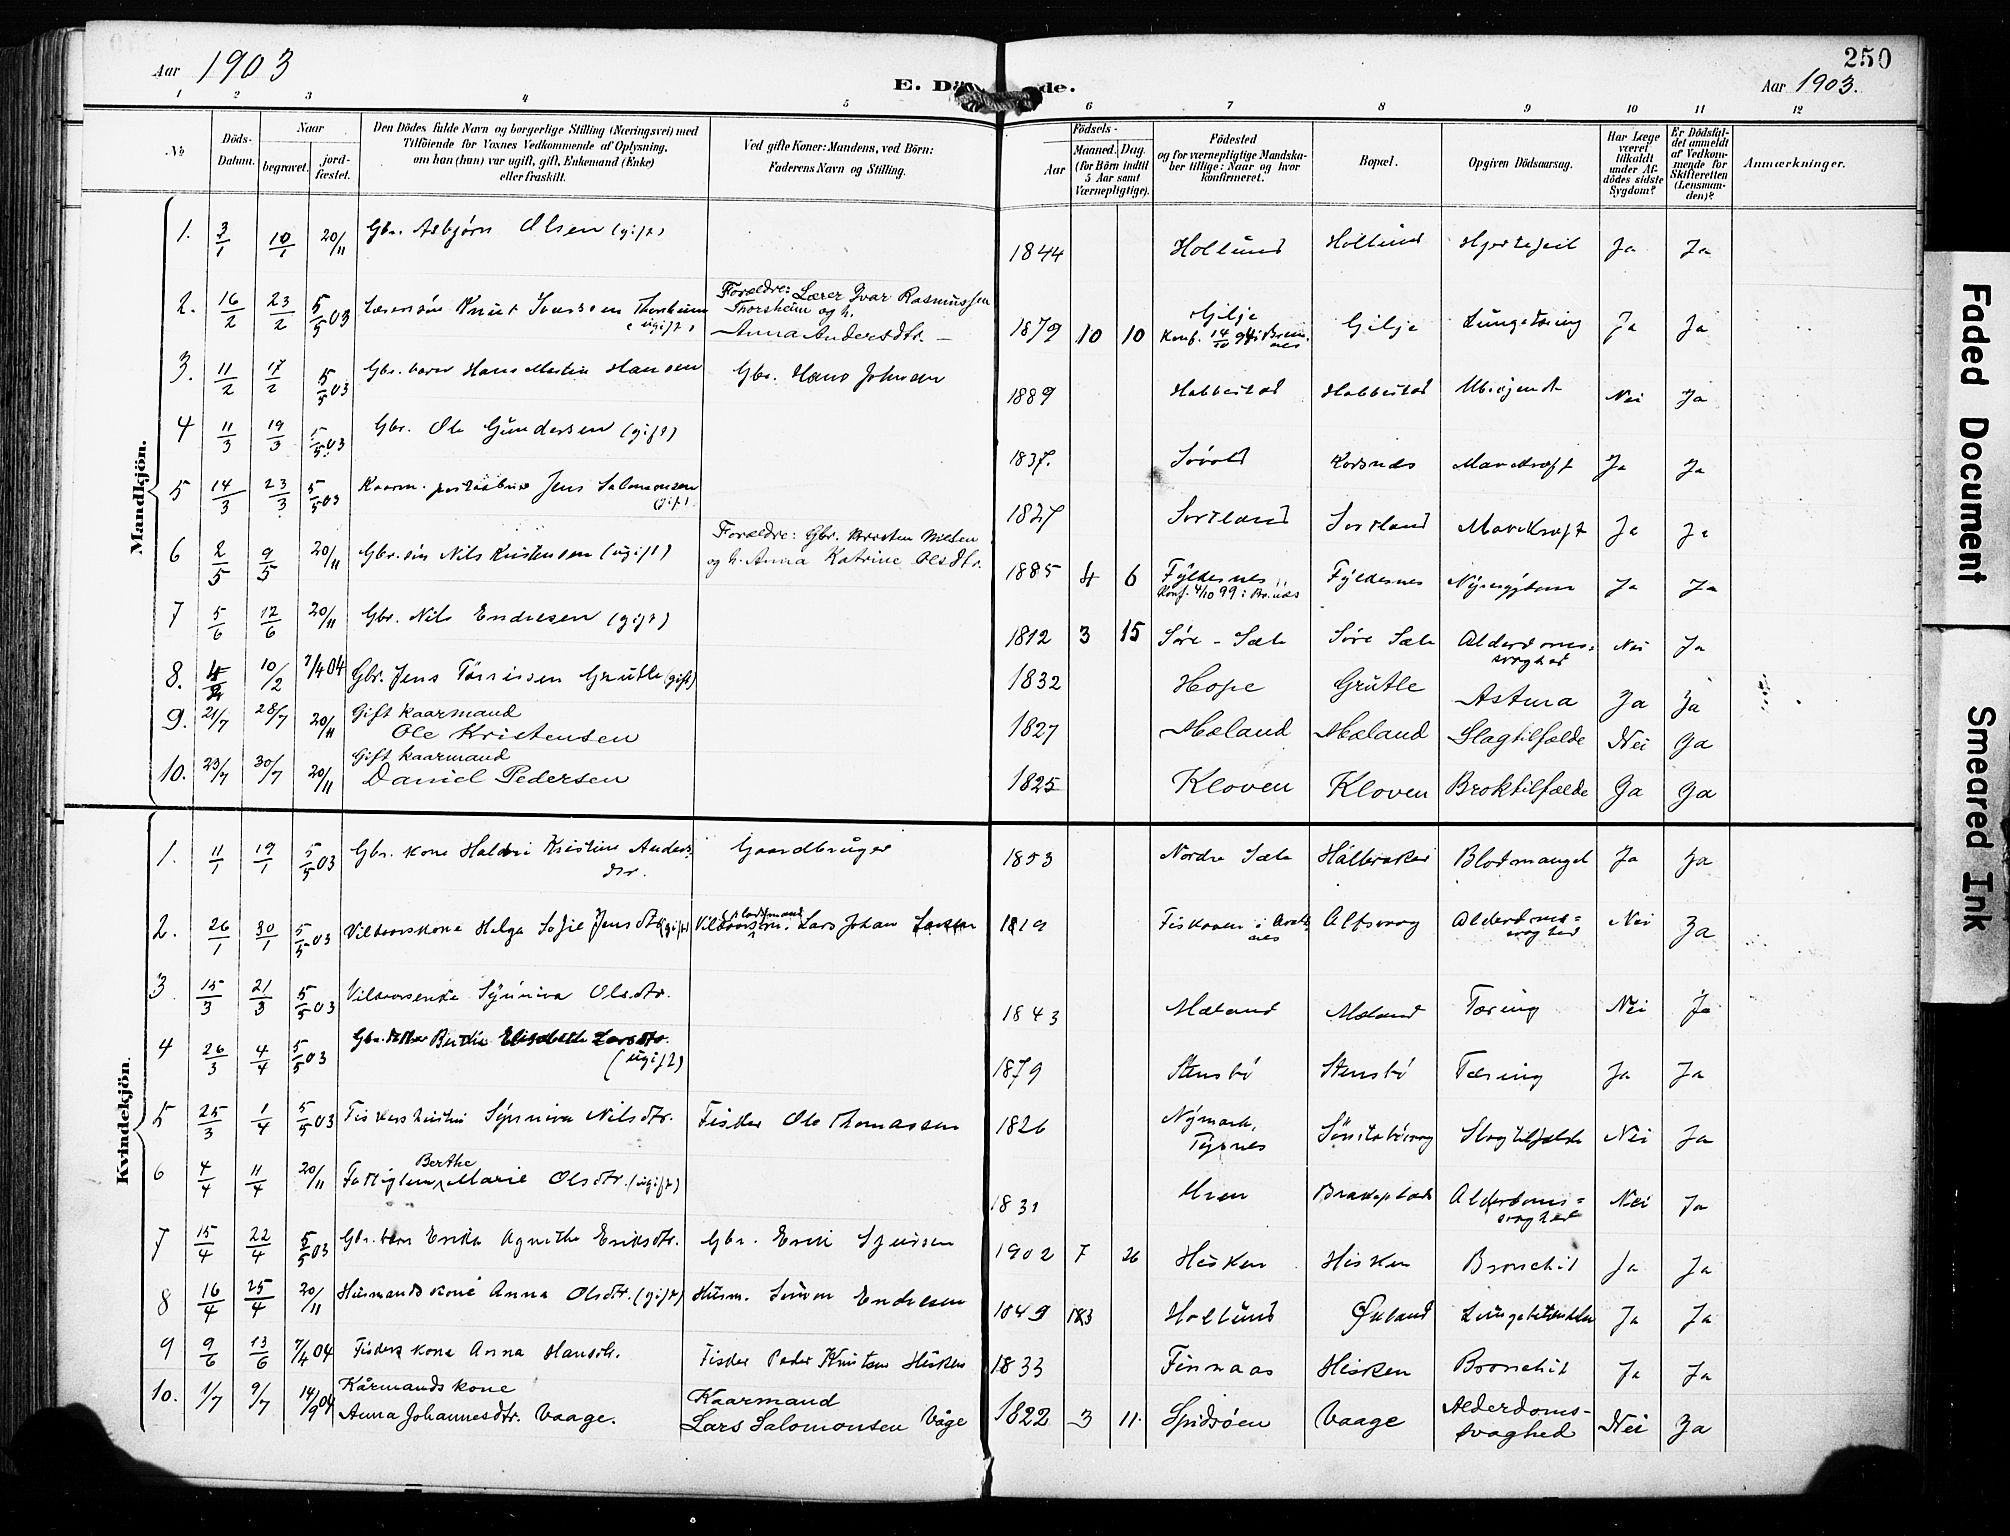 Aar 1903
E. Dö de.
250
Aar 1903.
1 2 3 4 5 6 7 8 9 10 11 12
No
Döds-Datum.
Naar
begravet.
jord-fæstet.
Den Dödes fulde Navn og borgerlige Stilling (Næringsvei) med
Tilföiende for Voxnes Vedkommende af Oplysning,
om han (hun) var ugift, gift, Enkemand (Enke)
eller fraskilt.
Ved gifte Koner: Mandens, ved Börn:
Faderens Navn og Stilling.
Födsels-
Aar
Maaned. Dag.
(for Börn indtil
5 Aar samt
Værnepligtige).
Födested
og for værnepligtige Mandska-
ber tillige: Naar og hvor
konfirmeret.
Bopæl.
Opgiven Dödsaarsag.
Har Læge
været
tilkaldt
under Af-
dödes sidste
Sygdom?
Er Dödsfal-
det anmeldt
af Vedkom-
mende for
Skifteretten
(Lensman-
den)?
Anmærkninger.
Mandkjön.
1. 3/1 10/1 20/11 Gbr. Asbjørn Olsen (gift) 1844 Hollund Hollund Hjertefeil Ja Ja
2. 16/2 23/2 5/5 03 Knut Ivarssen Thorsheim (ugift) Forældre: Lærer Ivar Rasmussen Thorsheim og h. Anna Andersdtr. 1879 10 10 Gilje Konf. Gilje Lungetæring Ja Ja
3. 11/2 17/2 5/5 03 Gbr. barn Hans Martin Hansen Gbr. Hans Johnsen 1889 Habbestad Habbestad Ubesigende Nei Ja
4 11/3 19/3 5/5 03 Gbr. Ole Gundersen (gift) 1837. Korsnæs Mavekræft Ja Ja
5 14/3 23/3 5/5 03 Kaarm. Jens Salomonsen (gift) 1827 Sortland Sortland Mavekræft Ja Ja
6 2/5 9/5 20/11 Gbr. søn Nils Kristensen (ugift) Forældre: Gbr. Nilsen og h. Anna Katrine Olsdtr. 1885 4 6 Fyldesnes Konf. 4/10 99 i Fyldesnes Nyresygdom Ja Ja
7 5/6 12/6 20/11 Gbr. Nils Endresen (gift) 1812 3 15 Søre-Sæle Søre Sæle Alderdoms-svaghed Nei Ja
8. 4/2 10/2 7/4 04 Gbr. Jens Tørrissen Grutle (gift) 1832 Hope Grutle Astma Ja Ja
9. 21/7 28/7 20/11 Gift kaarmand
Ole Kristensen 1827 Mæland Mæland Slagtilfælde Nei Ja
10. 23/7 30/7 20/11 Gift kaarmand
Daniel Pedersen 1825 Kloven Kloven Broktilfælde Ja Ja
Kvindekjön.
1. 11/1 19/1 5/5 03 Gbr. kone Kristine Anders-dtr. Gaardbruger 1853 Nordre Sæle Halleraker Blodmangel Ja Ja
2. 26/1 30/1 5/5 03 Helga Sofie Jensdtr (gift) Lars Johan Larsen 1819 Alfsvaag Alderdoms-svaghed Nei Ja
3 15/3 21/3 5/5 03 Synniva Olsdtr. 1843 Mæland Mæland Tæring Nei Ja
4 26/3 4/4 5/5 03 Gbr. datter Berthe Elisabeth Larsdtr. (ugift) 1879 Stensbø Stensbø Tæring Ja Ja
5 25/3 1/4 5/5 03 Fiskers hustru Synniva Nilsdtr. Fisker Ole Thomassen 1826 Nymark, Tysnes Slagtilfælde Nei Ja
6 4/4 11/4 20/11 Fattiglem Berthe Marie Olsdtr. (ugift) 1831 Alderdoms-svaghed Nei Ja
7 15/4 22/4 5/5 03 Gbr. barn Erika Agnethe Eriksdtr. Gbr. Erik Sjursen 1902 7 26 Hisken Hisken Bronchit Ja Ja
8 16/4 25/4 20/11 Husmands kone Anna Olsdtr. (gift) Husm. Simon Endresen 1849 Hollund Økland Ja Ja
9 9/6 13/6 7/4 04 Fiskers kone Anna Hansdtr. Fisker Peder Knutsen Hisken 1833 Finnaas Hisken Bronchit Ja Ja
10. 1/7 9/7 14/9 04 Kårmands kone
Anna Johannesdtr. Vaage. Kaarmand
Lars Salomonsen Våge 1822 3 11. Spidsøen Vaage Alderdoms-svaghed Nei Ja
Faded Document
Smeared Ink